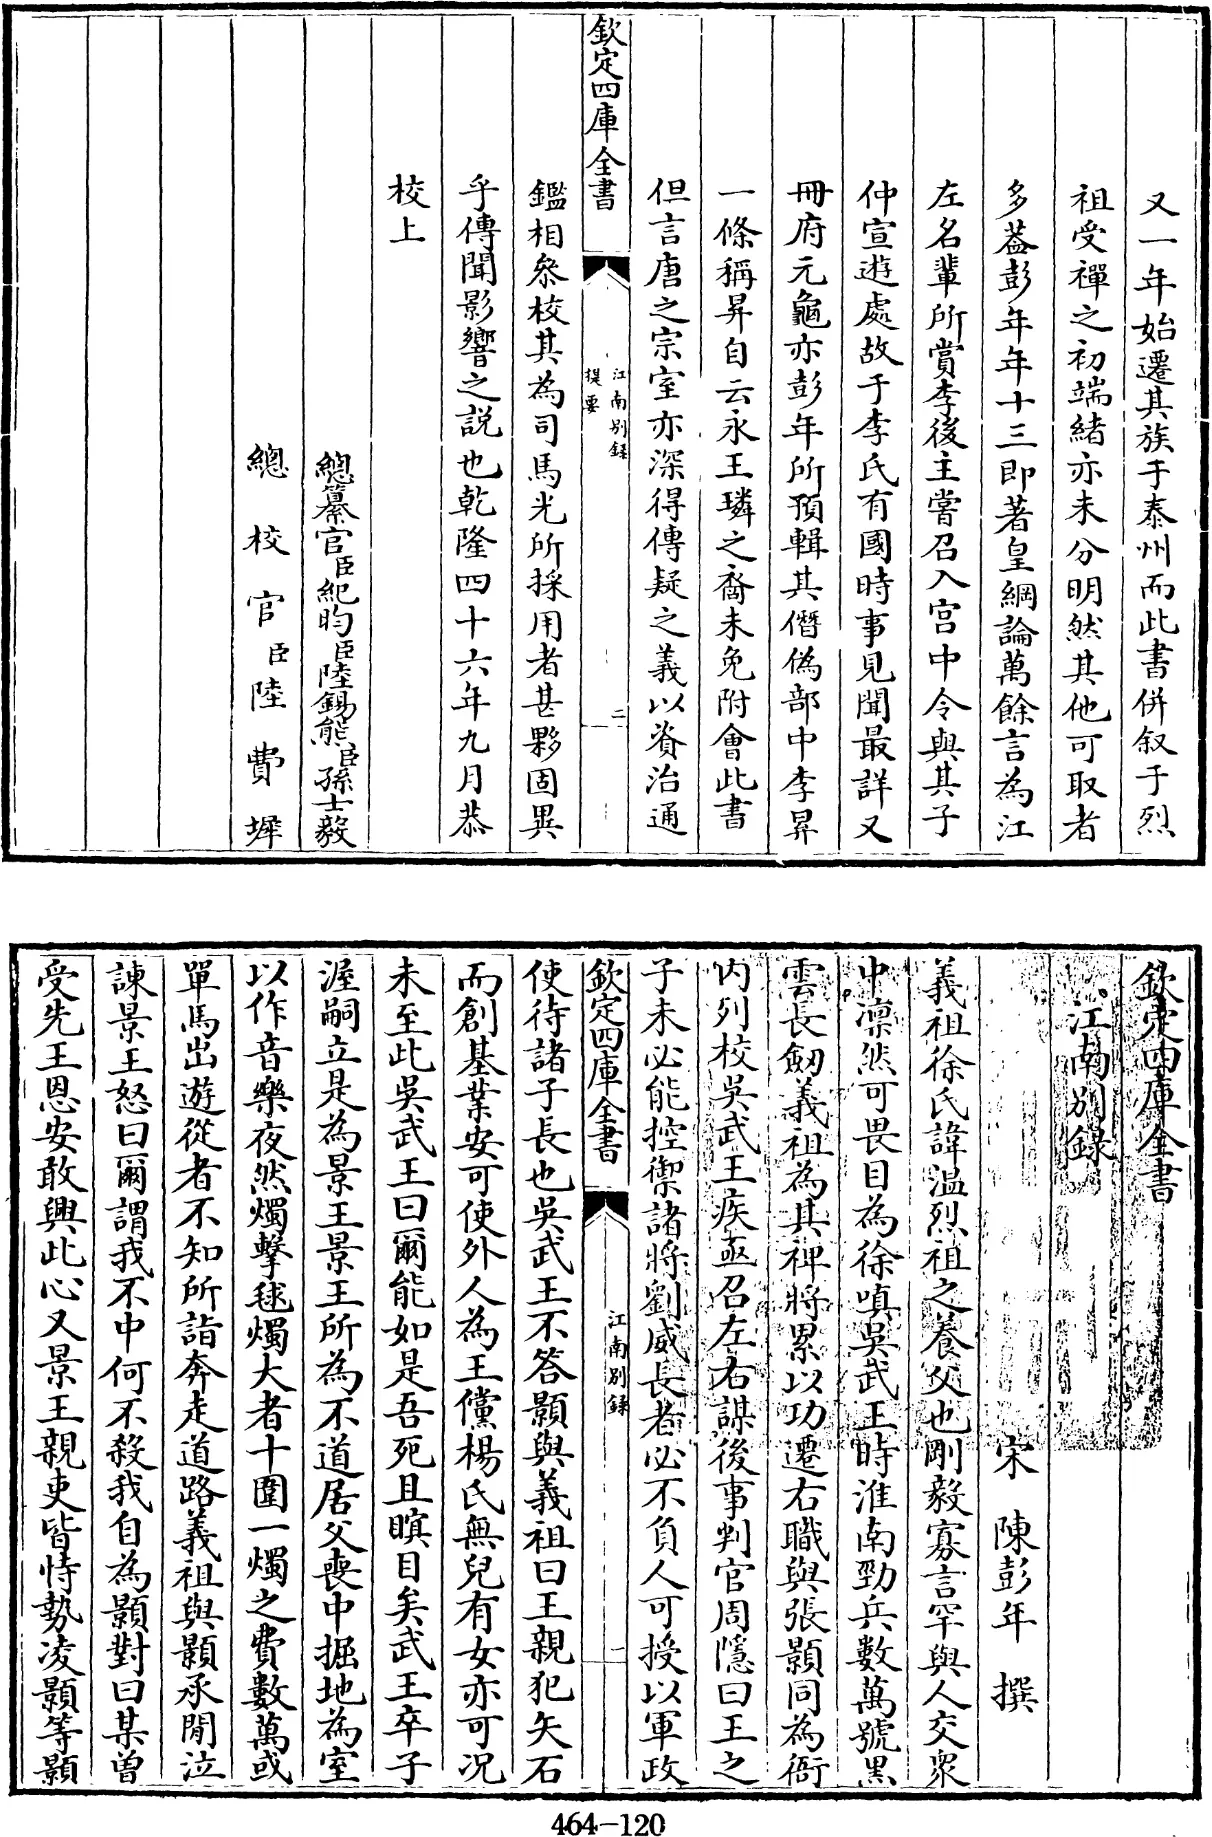 又一年始遷其族于泰州而此書併叙于烈
祖受禪之初端緒亦未分明然其他可取者
多葢彭年年十三即著皇綱論萬餘言為江
左名輩所賞李後主嘗召入宫中令與其子
仲宣遊處故于李氏有國時事見聞最詳又
冊府元龜亦彭年所預輯其僭偽部中李昪
一條稱昪自云永王璘之裔未免附會此書
但言唐之宗室亦深得傳疑之義以資治通
欽定四庫全書
江南别録
提要
二
鑑相叅校其為司馬光所採用者甚夥固異
乎傳聞影響之説也乾隆四十六年九月恭
校上
總纂官臣紀昀臣陸錫熊臣孫士毅
總校官臣陸費墀
欽定四庫全書
江南别録
宋 陳彭年 撰
義祖徐氏諱温烈祖之養父也剛毅寡言罕與人交衆
中凛然可畏目為徐嗔吳武王時淮南勁兵數萬號黑
雲長劒義祖為其裨將累以功遷右職與張顥同為衙
内列校吳武王疾亟召左右謀後事判官周隱曰王之
子未必能控禦諸將劉威長者必不負人可授以軍政
欽定四庫全書
江南别録
一
使待諸子長也吳武王不答顥與義祖曰王親犯矢石
而創基業安可使外人為王儻楊氏無兒有女亦可况
未至此吳武王曰爾能如是吾死且瞑目矣武王卒子
渥嗣立是為景王景王所為不道居父喪中掘地為室
以作音樂夜然燭擊毬燭大者十圍一燭之費數萬或
單馬出遊從者不知所詣奔走道路義祖與顥承閒泣
諫景王怒曰爾謂我不中何不殺我自為顥對曰某曽
受先王恩安敢興此心又景王親吏皆恃勢凌顥等顥
464-120